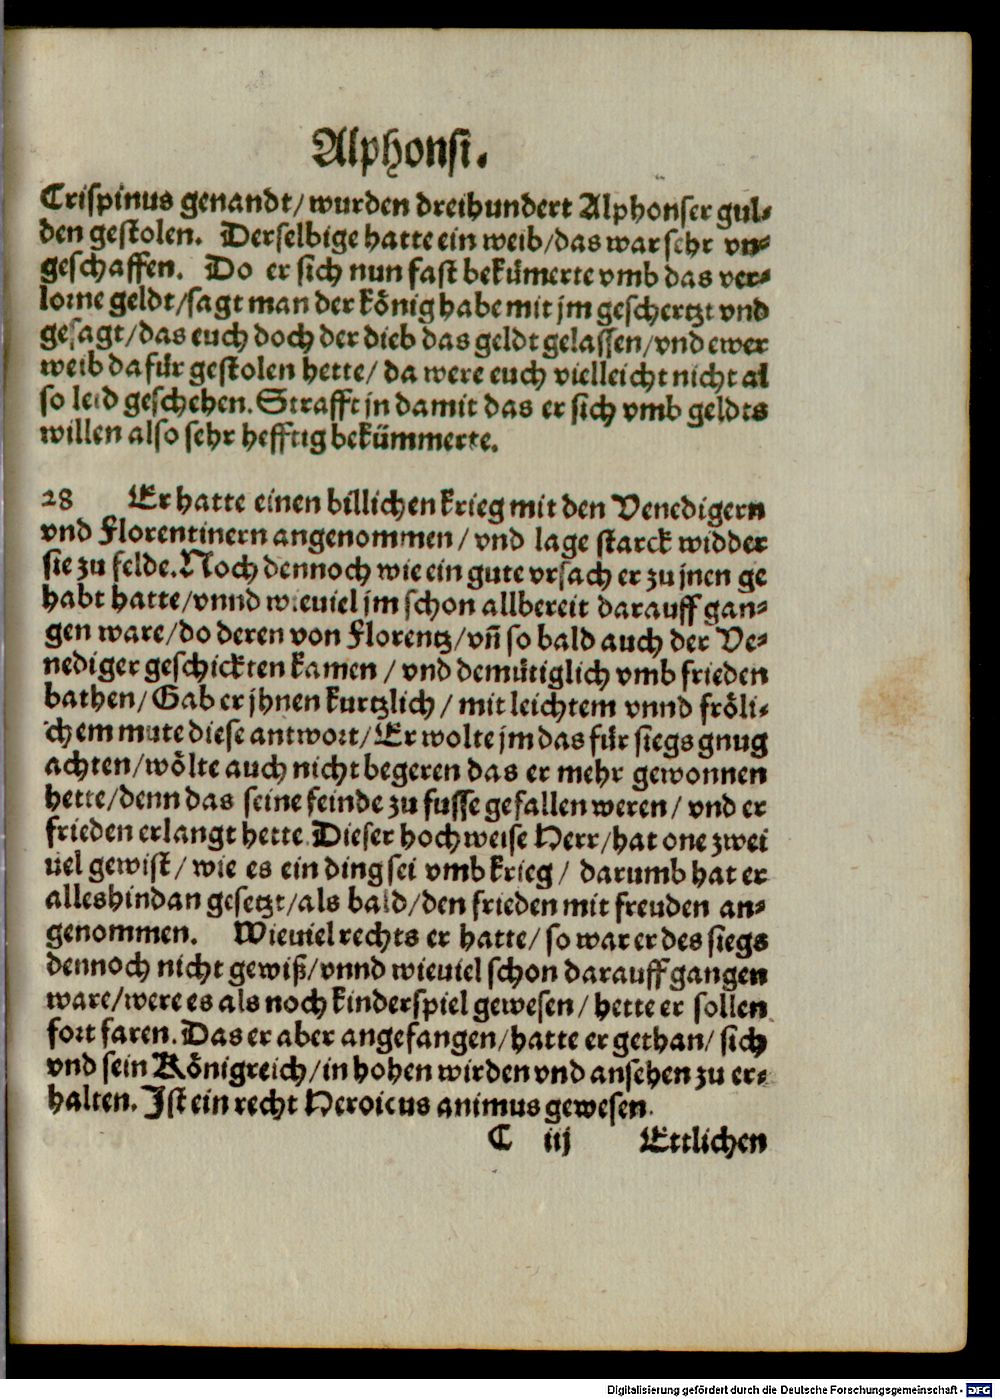 Alphonsi.
Crispinus genandt/ wurden dreihundert Alphonser gul-
den gestolen. Derselbige hatte ein weib/das war sehr vn-
geschaffen. Do er sich nun fast bekümerte vmb das ver-
lorne geldt/sagt man der könig habe mit jm geschertzt vnd
gesagt/das euch doch der dieb das geldt gelassen/vnd ewer
weib dafür gestolen hette/ da were euch villeicht nicht al
so leid geschehen. Strafft jn damit das er sich vmb geldts
willen also sehr hefftig bekümmerte.
28 Er hatte einen billichen krieg mit den Venedigern
vnd Florentinern angenommen/ vnd lage starck widder
sie zu felde. Noch dennoch wie ein gute vrsach er zu jnen ge
habt hatte/vnnd wieuiel jm schon allbereit darauff gan-
gen ware/do deren von Florentz/vñ so bald auch der Ve-
nediger geschickten kamen/ vnd demütiglich vmb frieden
bathen/ Gab er jhnen kurtzlich/ mit leichtem vnnd fröli-
chem mute diese antwort/ Er wolte jm das für siegs gnug
achten/wölte auch nicht begeren das er mehr gewonnen
hette/denn das seine feinde zu fusse gefallen weren/ vnd er
frieden erlangt hette. Dieser hochweise Herr/hat one zwei
uel gewist/ wie es ein ding sei vmb krieg/ darumb hat er
alles hindan gesetzt/als bald/den frieden mit freuden an-
genommen. Wieuiel rechts er hatte/ so war er des siegs
dennoch nicht gewiß/vnnd wieuiel schon darauff gangen
ware/were es als noch kinderspiel gewesen/ hette er sollen
fort faren. Das er aber angefangen/hatte er gethan/ sich
vnd sein Königreich/in hohen wirden vnd ansehen zu er-
halten. Ist ein recht Heroicus animus gewesen.
C iij Ettlichen
Digitalisierung gefördert durch die Deutsche Forschungsgemeinschaft - DFG